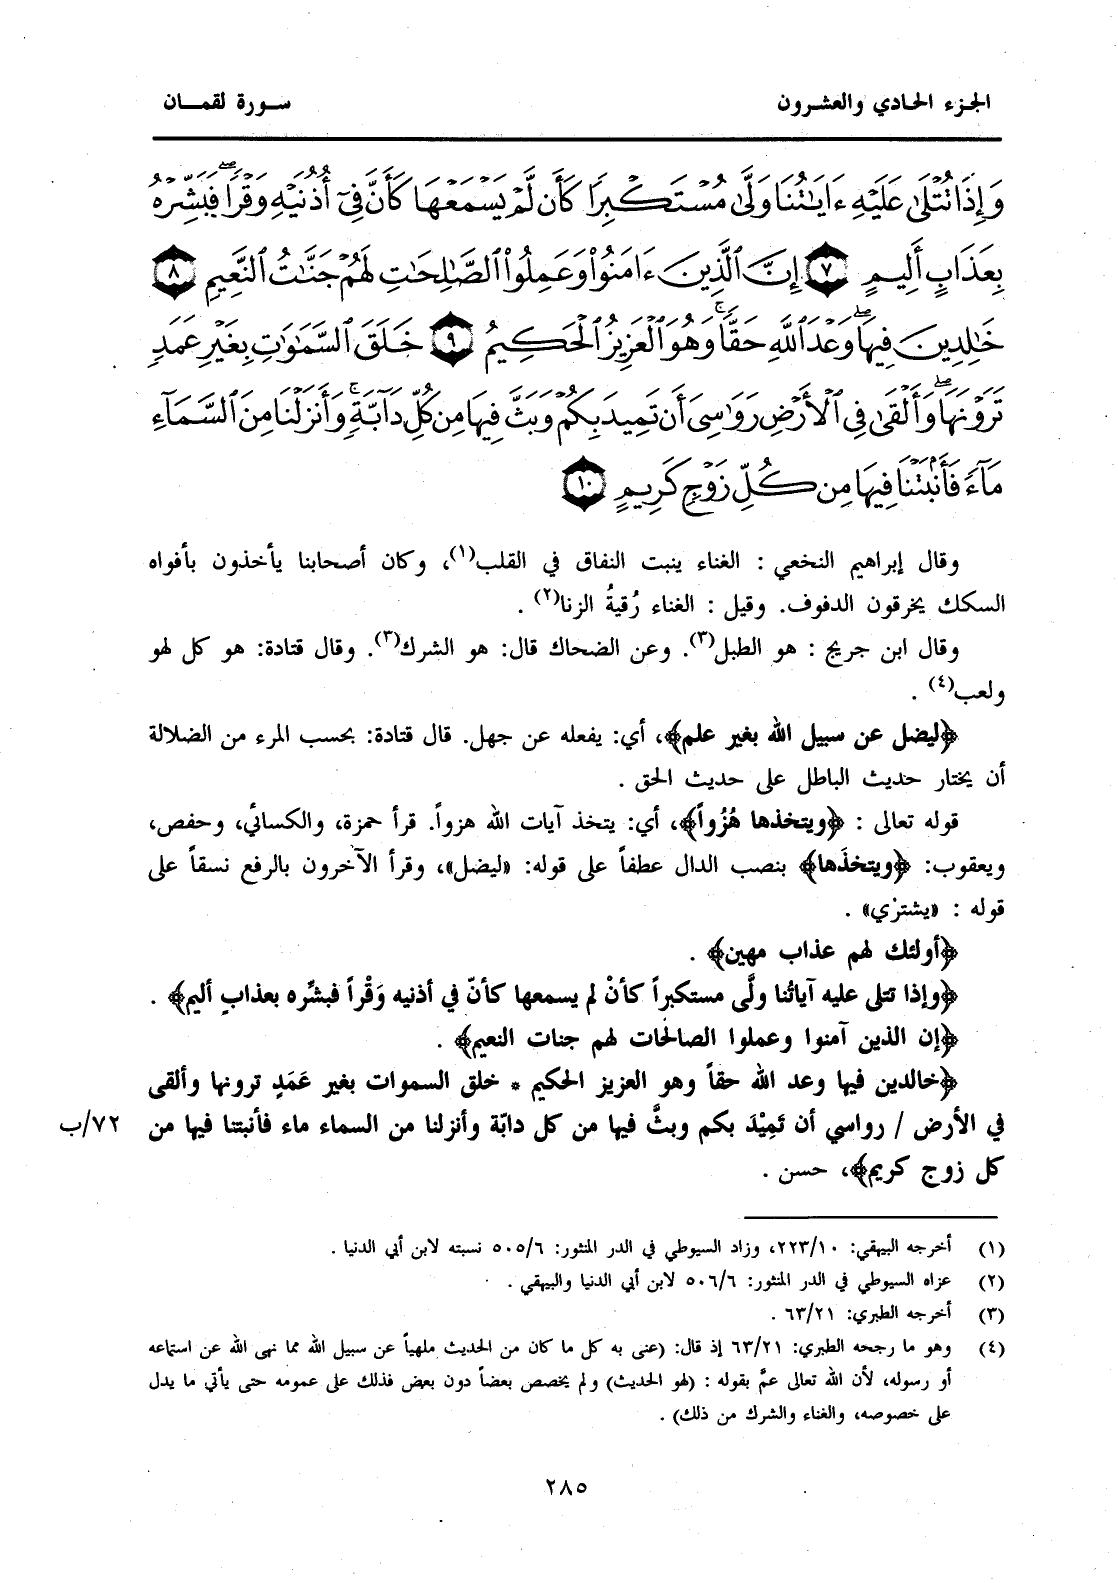 الجزء الحادي والعشرون
سورة لقمان
وَإِذَا تُتْلَىٰ عَلَيْهِ ءَايَٰتُنَا وَلَّىٰ مُسْتَكْبِرًا كَأَن لَّمْ يَسْمَعْهَا كَأَنَّ فِىٓ أُذُنَيْهِ وَقْرًا ۖ فَبَشِّرْهُ
بِعَذَابٍ أَلِيمٍ ٧ إِنَّ ٱلَّذِينَ ءَامَنُوا۟ وَعَمِلُوا۟ ٱلصَّٰلِحَٰتِ لَهُمْ جَنَّٰتُ ٱلنَّعِيمِ ٨
خَٰلِدِينَ فِيهَا ۖ وَعْدَ ٱللَّهِ حَقًّا ۚ وَهُوَ ٱلْعَزِيزُ ٱلْحَكِيمُ ٩ خَلَقَ ٱلسَّمَٰوَٰتِ بِغَيْرِ عَمَدٍ
تَرَوْنَهَا ۖ وَأَلْقَىٰ فِى ٱلْأَرْضِ رَوَٰسِىَ أَن تَمِيدَ بِكُمْ وَبَثَّ فِيهَا مِن كُلِّ دَآبَّةٍ ۚ وَأَنزَلْنَا مِنَ ٱلسَّمَآءِ
مَآءً فَأَنۢبَتْنَا فِيهَا مِن كُلِّ زَوْجٍ كَرِيمٍ ١٠
وقال إبراهيم النخعي : الغناء ينبت النفاق في القلب(١)، وكان أصحابنا يأخذون بأفواه
السكك يخرقون الدفوف. وقيل : الغناء رُقيةُ الزنا(٢) .
وقال ابن جريج : هو الطبل(٣). وعن الضحاك قال: هو الشرك(٣). وقال قتادة: هو كل لهو
ولعب(٤) .
﴿ليضل عن سبيل الله بغير علم﴾، أي: يفعله عن جهل. قال قتادة: بحسب المرء من الضلالة
أن يختار حديث الباطل على حديث الحق .
قوله تعالى : ﴿ويتخذها هُزُواً﴾، أي: يتخذ آيات الله هزواً. قرأ حمزة، والكسائي، وحفص،
ويعقوب: ﴿ويتخذَها﴾ بنصب الدال عطفاً على قوله: «ليضل»، وقرأ الآخرون بالرفع نسقاً على
قوله : «يشتري» .
﴿أولئك لهم عذاب مهين﴾ .
﴿وإذا تتلى عليه آياتُنا ولَّى مستكبراً كأنْ لم يسمعها كأنّ في أذنيه وَقْراً فبشِّره بعذابٍ أليم﴾ .
﴿إن الذين آمنوا وعملوا الصالحات لهم جنات النعيم﴾ .
﴿خالدين فيها وعد الله حقاً وهو العزيز الحكيم * خلق السموات بغير عَمَدٍ ترونها وألقى
في الأرض / رواسي أن تَمِيْدَ بكم وبثَّ فيها من كل دابّة وأنزلنا من السماء ماء فأنبتنا فيها من
٧٢/ب
كل زوج كريم﴾، حسن .
(١) أخرجه البيهقي: ٢٢٣/١٠، وزاد السيوطي في الدر المنثور: ٥٠٥/٦ نسبته لابن أبي الدنيا .
(٢) عزاه السيوطي في الدر المنثور: ٥٠٦/٦ لابن أبي الدنيا والبيهقي .
(٣) أخرجه الطبري: ٦٣/٢١ .
(٤) وهو ما رجحه الطبري: ٦٣/٢١ إذ قال: (عنى به كل ما كان من الحديث ملهياً عن سبيل الله مما نهى الله عن استماعه
أو رسوله، لأن الله تعالى عمَّ بقوله : (لهو الحديث) ولم يخصص بعضاً دون بعض فذلك على عمومه حتى يأتي ما يدل
على خصوصه، والغناء والشرك من ذلك) .
٢٨٥